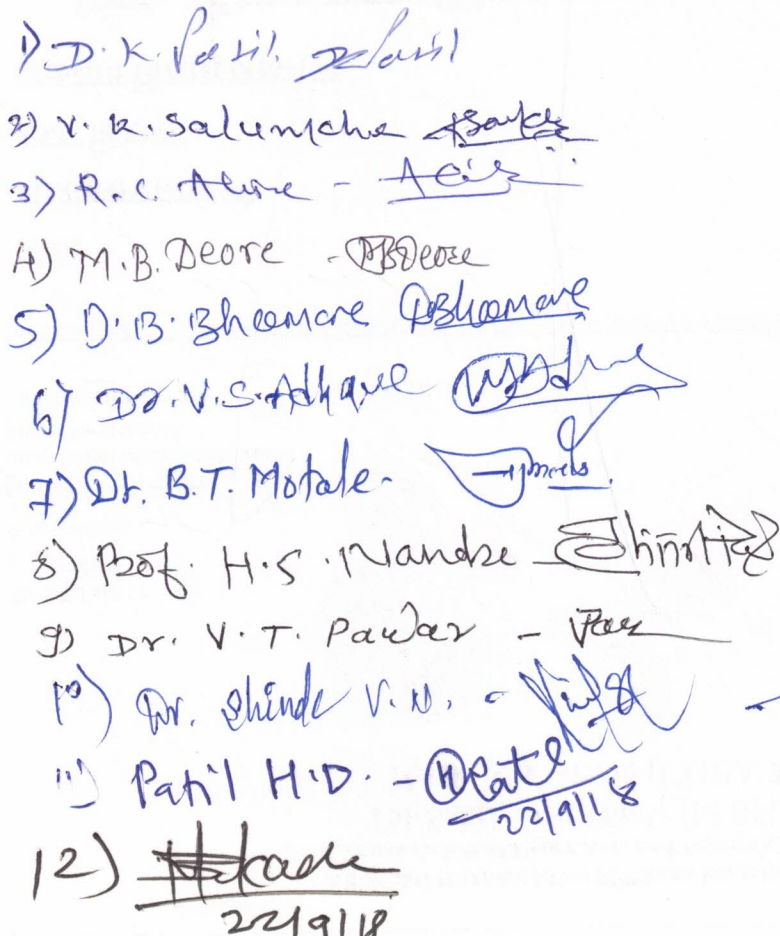 1) D. K. Patil
2) V. K. Salunkhe
3) R. C. Ahire -
4) M. B. Deore - MBDeore
5) D. B. Bhamare DBhamare
6) Dr. V. S. Adhave
7) Dr. B. T. Motale -
8) Prof. H. S. Nandre -
9) Dr. V. T. Pawar -
10) Dr. Shinde V. N. -
11) Patil H.D. - HPatel
22/9/18
12)
22/9/18